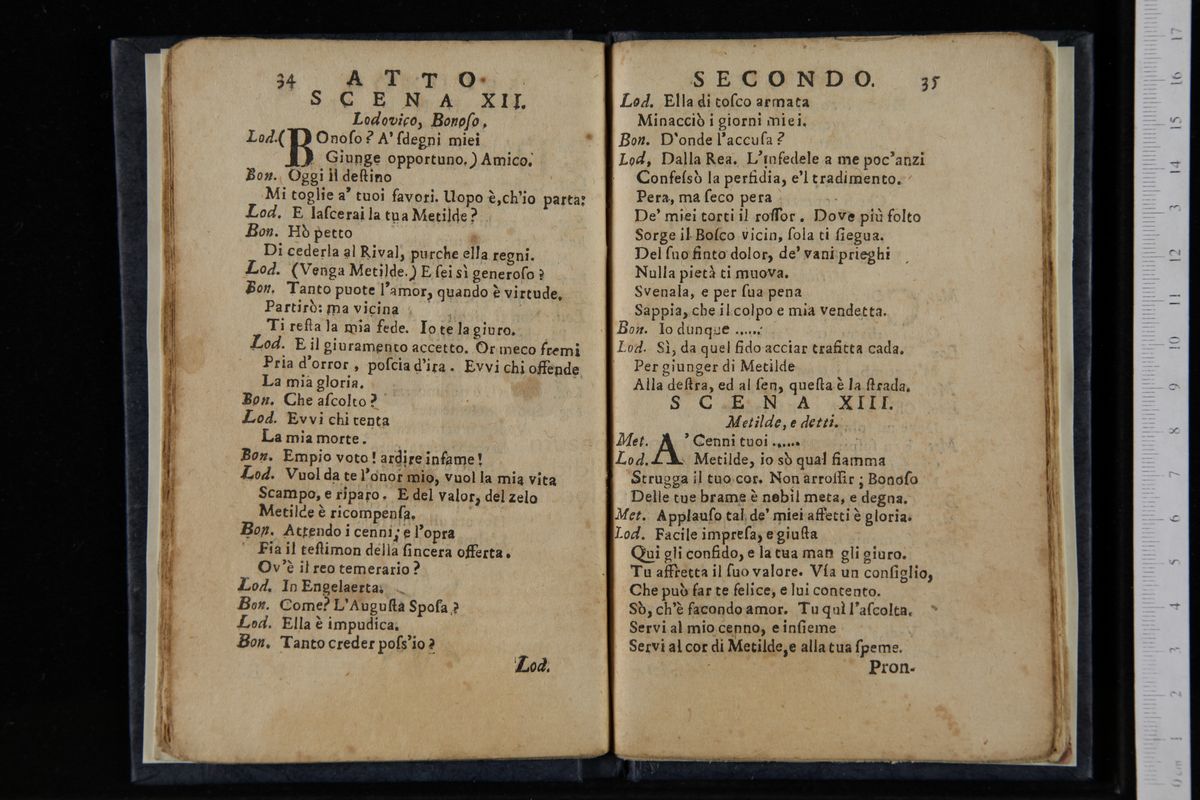 34 ATTO
SCENA XII.
Lodovico, Bonoſo.
Lod. (BOnoſo? A' ſdegni miei
Giunge opportuno.) Amico.
Bon. Oggi il deſtino
Mi toglie a' tuoi favori. Uopo è, ch'io parta:
Lod. E laſcerai la tua Metilde?
Bon. Hò petto
Di cederla al Rival, purche ella regni.
Lod. (Venga Metilde.) E ſei sì generoſo?
Bon. Tanto puote l'amor, quando è virtude.
Partirò: ma vicina
Ti reſta la mia fede. Io te la giuro.
Lod. E il giuramento accetto. Or meco fremi
Pria d'orror, poſcia d'ira. Evvi chi offende
La mia gloria.
Bon. Che aſcolto?
Lod. Evvi chi tenta
La mia morte.
Bon. Empio voto! ardire infame!
Lod. Vuol da te l'onor mio, vuol la mia vita
Scampo, e riparo. E del valor, del zelo
Metilde è ricompenſa.
Bon. Attendo i cenni; e l'opra
Fia il teſtimon della ſincera offerta.
Ov'è il reo temerario?
Lod. In Engelaerta.
Bon. Come? L'Auguſta Spoſa?
Lod. Ella è impudica.
Bon. Tanto creder poſs'io?
Lod.
SECONDO. 35
Lod. Ella di toſco armata
Minacciò i giorni miei.
Bon. D'onde l'accuſa?
Lod, Dalla Rea. L'infedele a me poc'anzi
Confeſsò la perfidia, e'l tradimento.
Pera, ma ſeco pera
De' miei torti il roſſor. Dove più folto
Sorge il Boſco vicin, ſola ti ſiegua.
Del ſuo finto dolor, de' vani prieghi
Nulla pietà ti muova.
Svenala, e per ſua pena
Sappia, che il colpo e mia vendetta.
Bon. Io dunque ......
Lod. Sì, da quel fido acciar trafitta cada.
Per giunger di Metilde
Alla deſtra, ed al ſen, queſta è la ſtrada.
SCENA XIII.
Metilde, e detti.
Met. A' Cenni tuoi ......
Lod. Metilde, io sò qual fiamma
Strugga il tuo cor. Non arroſſir; Bonoſo
Delle tue brame è nobil meta, e degna.
Met. Applauſo tal de' miei affetti è gloria.
Lod. Facile impreſa, e giuſta
Qui gli confido, e la tua man gli giuro.
Tu affretta il ſuo valore. Vſa un conſiglio,
Che può far te felice, e lui contento.
Sò, ch'è facondo amor. Tu quì l'aſcolta.
Servi al mio cenno, e inſieme
Servi al cor di Metilde, e alla tua ſpeme.
Pron-
17
16
15
14
13
12
11
10
9
8
7
6
5
4
3
2
1
0 cm